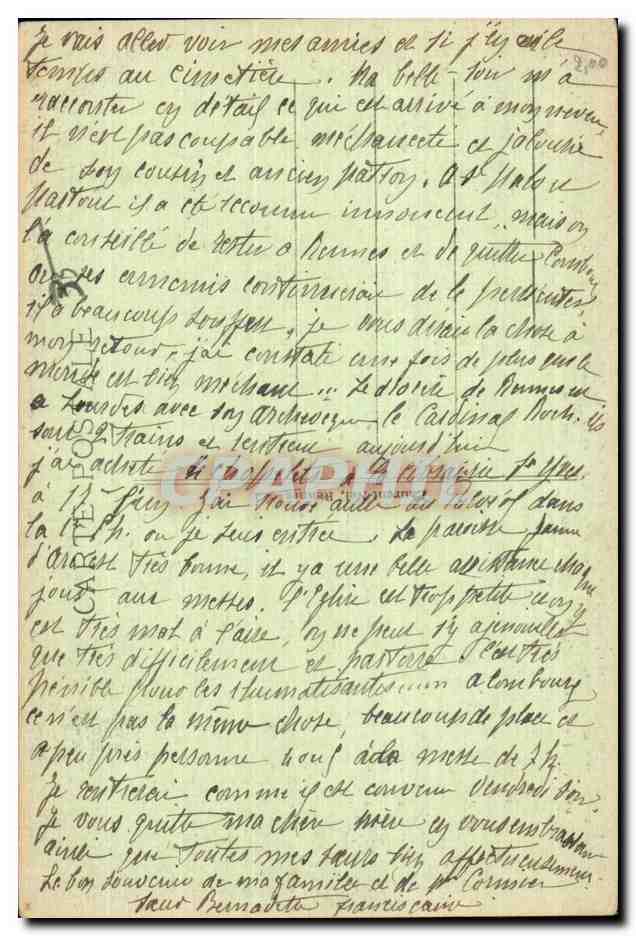 Je vais aller voir mes amies et si j'ai le
temps au cimetière. Ma belle-sœur m'a
raconter en détail ce qui est arrivé à mon neveu,
il n'est pas coupable méchanceté et jalousie
de son cousin et ancien patron. A St Malo et
partout il a été reconnu innocent, mais on
l'a conseillé de rester à Rennes et de quitter Combourg
ses ennemis continuerai de le persécuter,
il a beaucoup souffert, je vous dirai la chose à
mon retour, j'ai constaté une fois de plus que le
monde est bien méchant... Le diocèse de Rennes est
a Lourdes avec son archevêque le Cardinal Roch. ils
sont 2 trains et rentrent aujourd'hui
j'ai acheté à St Yves
à 11 dans
la 1re Ch. ou je suis entrée. La paroisse Jeanne
d'Arc est très bonne, il y a une belle assistance chaque
jour aux messes. l'Eglise est trop petite et on y
est très mal à l'aise, on ne peut s'y agenouiller
que très difficilement et par terre c'est très
pénible pour les rhumatisantes a Combourg
ce n'est pas la même chose, beaucoup de place et
a peu près personne à la messe de 7h.
Je rentrerai comme il est convenu Vendredi soir.
Je vous quitte ma chère mère en vous embrassant
ainsi que toutes mes sœurs bien affectueusement.
Le bon souvenir de ma famille et de Cormier
Sœur Bernadette franciscaine
2,00
30
CARTE POSTALE
CPAPHIL
Laurent Nel, Rennes